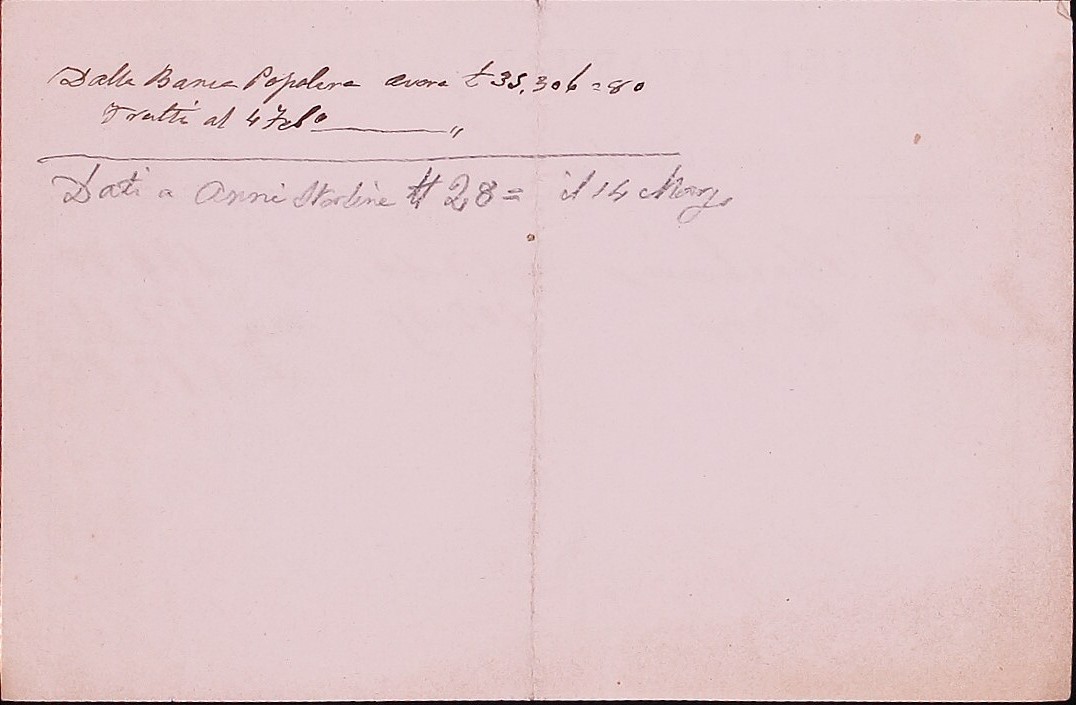 Dalla Banca Popolare avere £ 35,306=80
Tratti al 4 Feb° ———— "
Dati a Anni Sterline # 28= il 14 Marzo